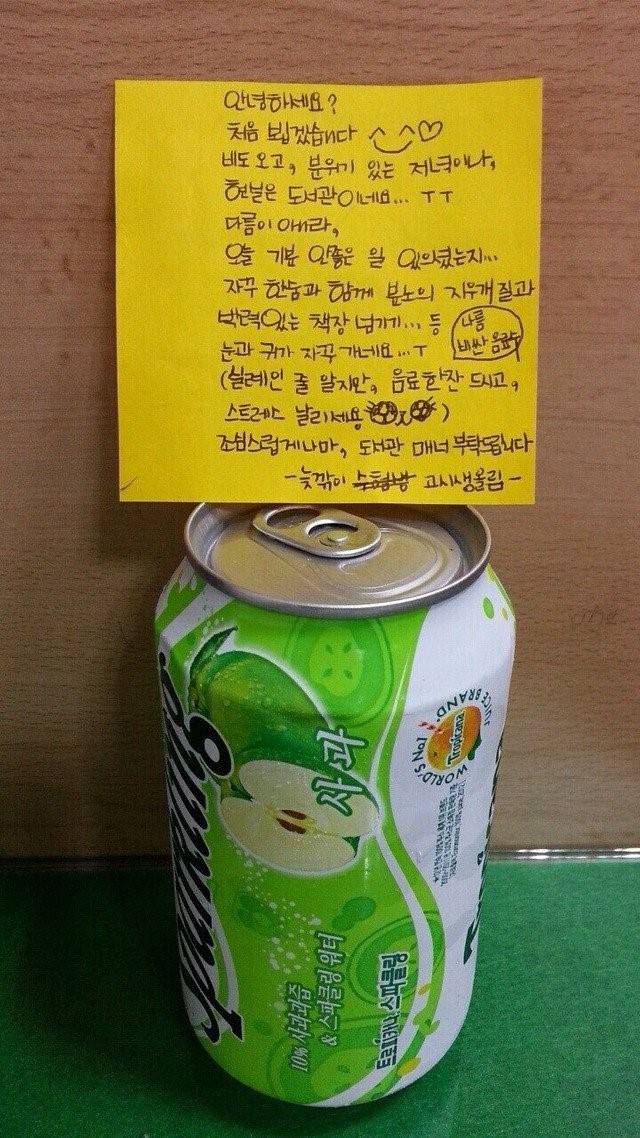 안녕하세요?
처음 뵙겠습니다 ^_^♡
비도 오고, 분위기 있는 저녁이나,
현실은 도서관이네요... ㅜㅜ
다름이 아니라,
오늘 기분 안좋은 일 있으셨는지...
자꾸 한숨과 함께 분노의 지우개질과
박력있는 책장 넘기기... 등
눈과 귀가 자꾸 가네요...ㅜ
나름
비싼 음료
(실례인 줄 알지만, 음료 한잔 드시고,
스트레스 날리세용)
조심스럽게나마, 도서관 매너 부탁드립니다
-늦깎이 고시생올림-
Sparkling
사과
WORLD'S No.1 JUICE BRAND
Tropicana
10% 사과과즙
& 스파클링 워터
트로피카나 스파클링